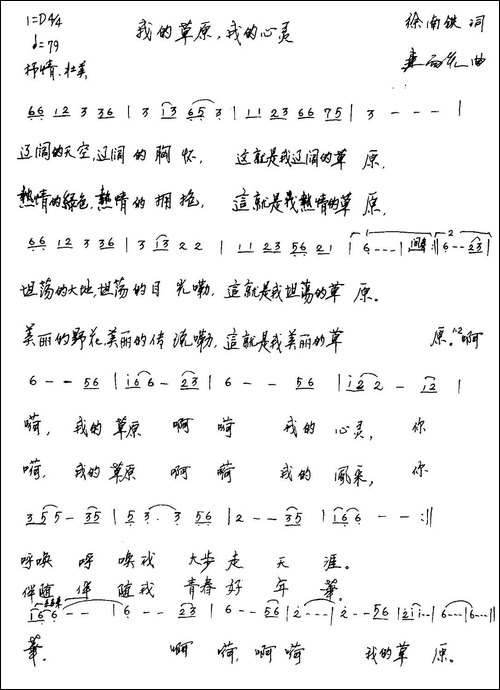 1=D 4/4 我的草原，我的心灵 徐南铁 词
♩=79 曲
抒情、壮美
66 12 3 36 | 3 i3 65 3 | 11 23 66 75 | 3 - - - |
辽阔的天空，辽阔的胸怀， 这就是我辽阔的草原，
熱情的绿色，熱情的拥抱， 這就是我熱情的草原，
66 12 3 36 | 3 i3 2 2 | 11 23 56 21 | 6 - - - | 间奏 :‖ 6 - - 23 |
坦荡的大地，坦荡的目光嘞，這就是我坦荡的草原。
美丽的野花，美丽的传流嘞，這就是我美丽的草原。啊
6 - - 56 | i6 6 - 23 | 6 - - 56 | i2 2 - i2 |
嗬， 我的草原 啊嗬 我的心灵， 你
嗬， 我的草原 啊嗬 我的風采， 你
3 5 5 - 35 | 5 3 · 3 56 | 2 - - 35 | i66 - - :‖
呼唤 呼唤我 大步走天涯。
伴随 伴随我 青春好年華。
i6 6 - - | 6 - - 23 | 6 - - 56 | 2 - - - | 2 - - 56 | 2i i - - | 6 - - - | 6 - - - ‖
華。 啊嗬，啊嗬 我的草原。